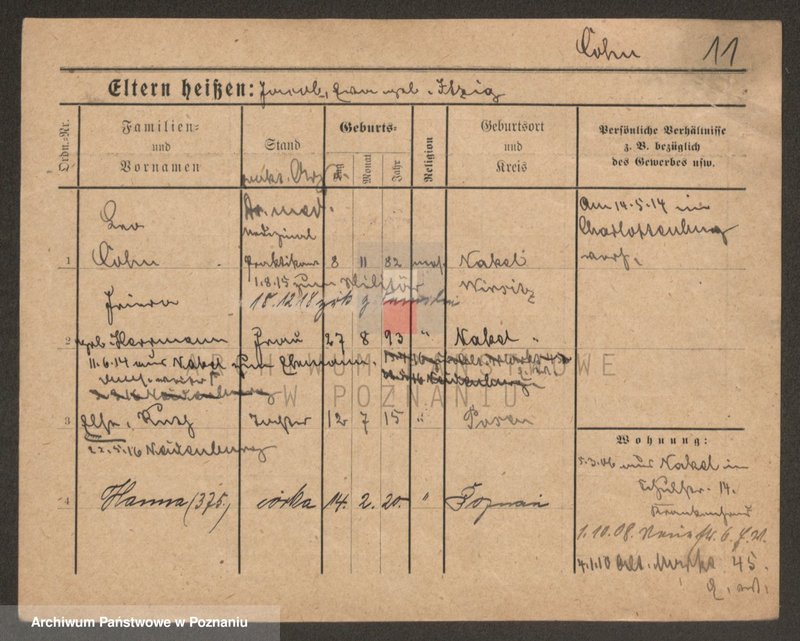 Cohn 11
Eltern heißen: Jacob, Eva geb. Itzig
Ordn.-Nr.
Familien- und Vornamen
Stand
Geburts-
Tag
Monat
Jahr
Religion
Geburtsort und Kreis
Persönliche Verhältnisse z. B. bezüglich des Gewerbes usw.
prakt. Arzt
Leo
Dr. med.
Medizinal
Am 14.5.14 in
Charlottenburg
1 Cohn Praktikant 8 11 82 mos. Nakel
verh.
1.8.15 zum Militär Wirsitz
18.12.18 zrk
2 geb. Herrmann Frau 27 8 93 " Nakel "
11.6.14 aus Nakel zum Ehemann.
3 Else, Ruth Tochter 12 7 15 " Posen
22.5.16 Neidenburg
4 Hanna (375) córka 14. 2. 20. " Poznań
Wohnung:
5.3.06 aus Nakel in
14.
Krankenhaus
1.10.08. 6.
4.1.10 Alt. Markt 45.
ARCHIWUM PAŃSTWOWE
W POZNANIU
Archiwum Państwowe w Poznaniu